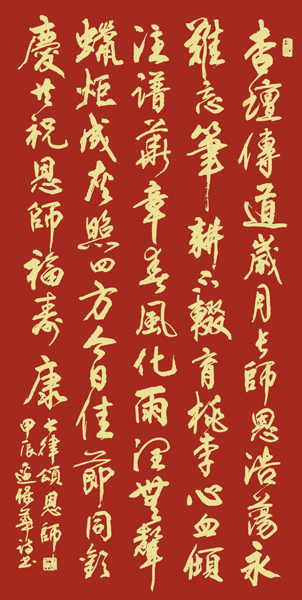 杏壇傳道歲月長師恩浩蕩永
難忘筆耕不輟育桃李心血傾
注譜華章春風化雨潤無聲
蠟炬成灰照四方今日佳節同歡
慶共祝恩師福壽康
七律頌恩師
甲辰華詩書